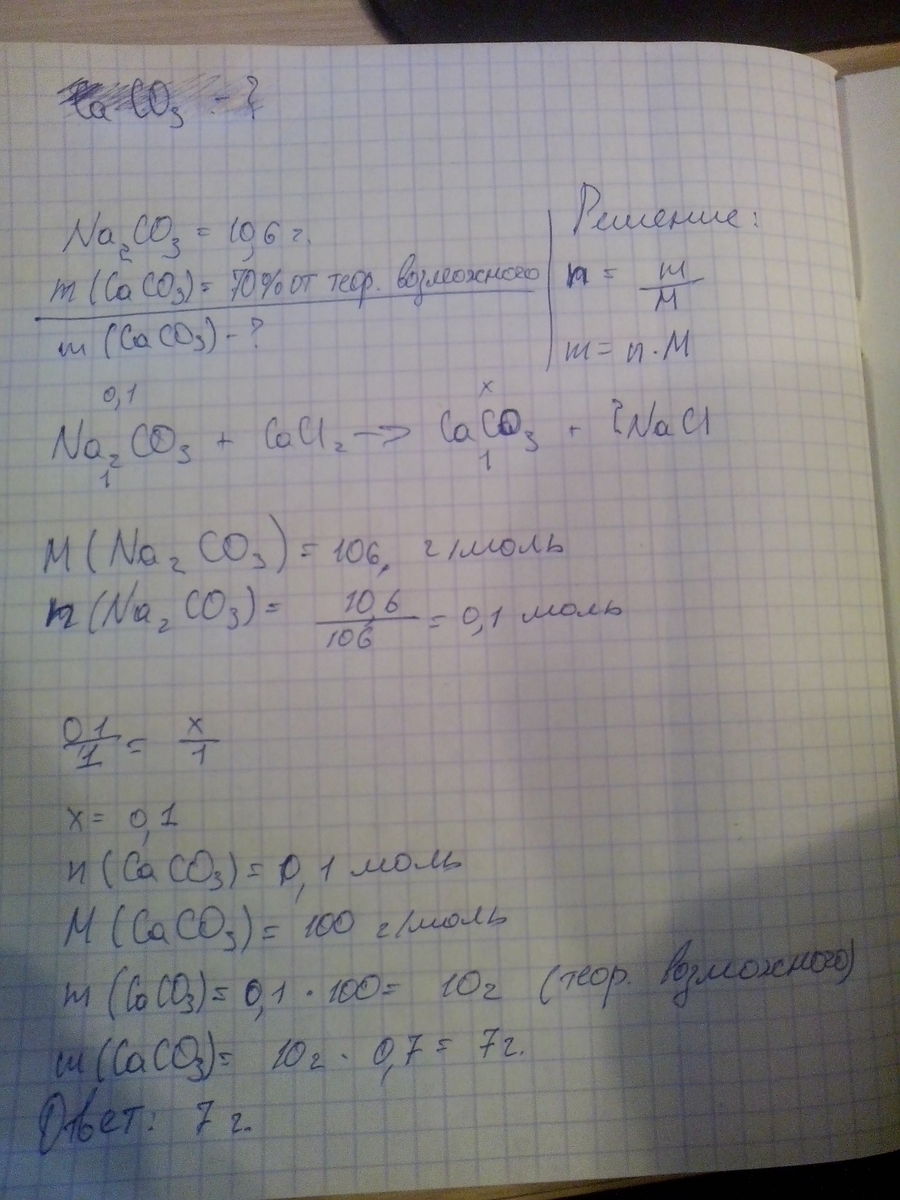 CaCO₃ - ?
Na₂CO₃ = 10,6 г.
m (CaCO₃) = 70% от теор. возможного
m (CaCO₃) - ?
Решение:
n = m/M
m = n · M
0,1 x
Na₂CO₃ + CaCl₂ → CaCO₃ + 2NaCl
1 1
M (Na₂CO₃) = 106, г/моль
n (Na₂CO₃) = 10,6/106 = 0,1 моль
0,1/1 = x/1
x = 0,1
n (CaCO₃) = 0,1 моль
M (CaCO₃) = 100 г/моль
m (CaCO₃) = 0,1 · 100 = 10г (теор. возможного)
m (CaCO₃) = 10г · 0,7 = 7г.
Ответ: 7 г.